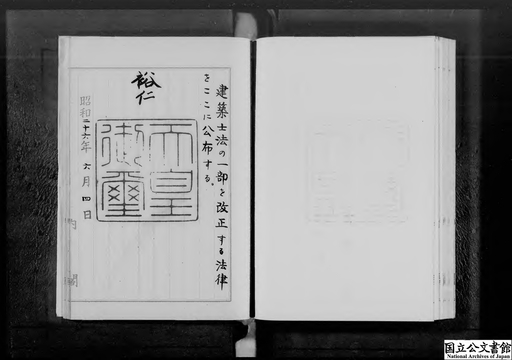 建築士法の一部を改正する法律
をここに公布する。
裕仁
天皇
御璽
昭和二十六年六月四日
内閣
国立公文書館
National Archives of Japan